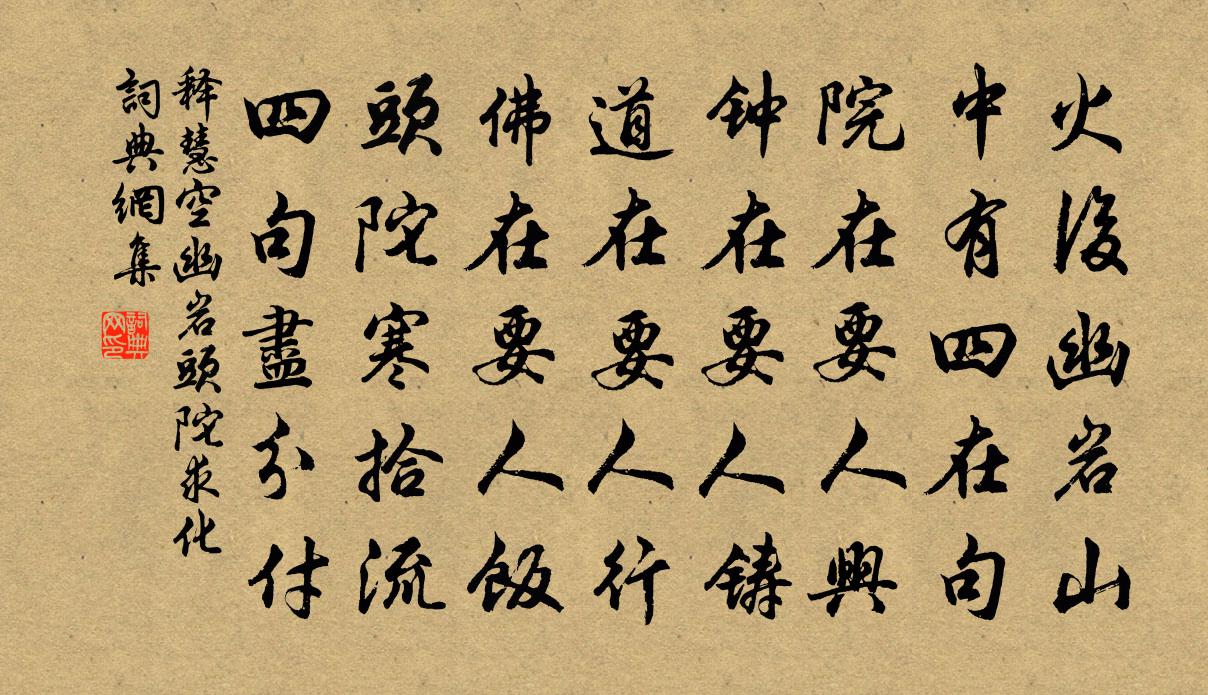 火後幽岩山
中有四在句
院在要人興
钟在要人鑄
道在要人行
佛在要人飯
頭陀寒拾流
四句盡分付
释慧空幽岩頭陀求化
詞典網集
詞典网印